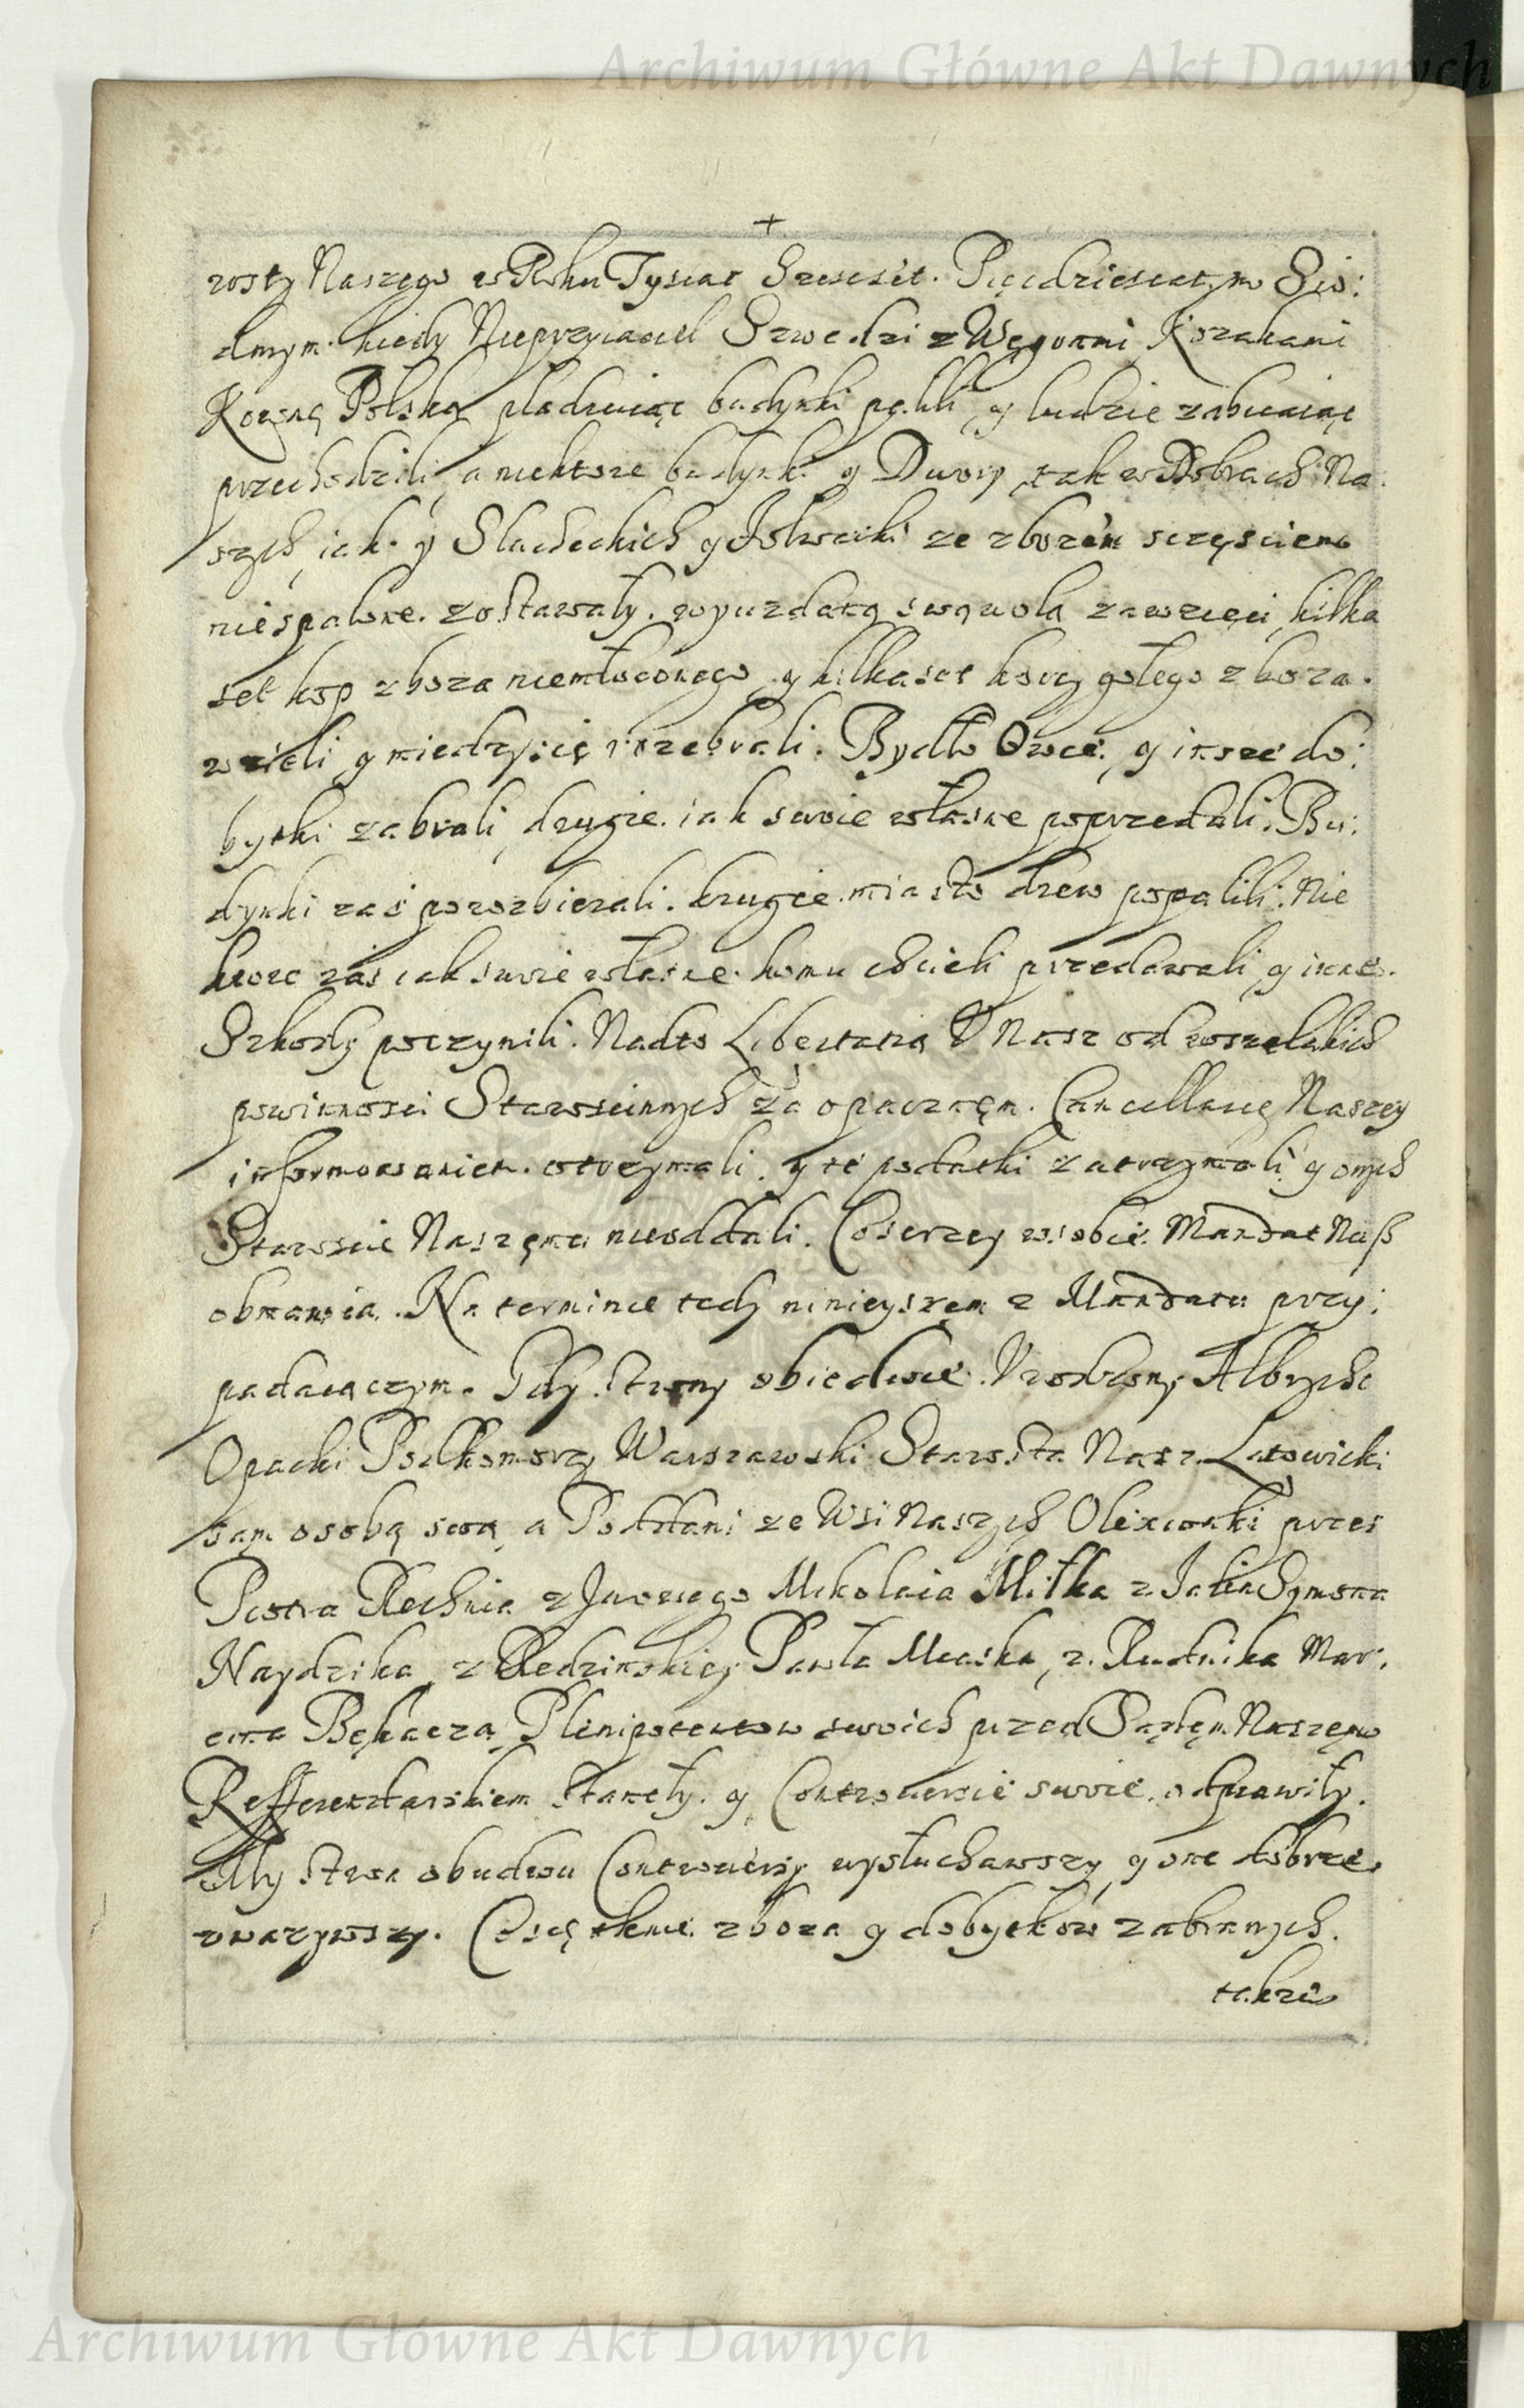 Archiwum Główne Akt Dawnych
+
rosty Naszego w Roku Tysiąc Szescset Pięcdziesiatym Sio:
dmym. kiedy Nieprzyiaciel Szwedzi z Węgrami Kozakami
Koroną Polską pladruiąc budynki palili, y ludzie zabiiaiąc
przechodzili, a niektore budynki y Dwory tak w Dobrach Na:
szych, iako y Slacheckich y Folwarki ze zbozem sczęsciem
niespalone zostawały. wyuzdaną swąwolą zawzięci, kilka
set kop zboza niemłoconego, y kilkaset korcy gołego zboza.
wzieli y miedzy się rozebrali. Bydło Owce, y insze do:
bytki zabrali, drugie iak swoie własne poprzedali. Bu:
dynki zaś porozbierali. drugie miasto drew popalili. Nie
ktore zaś iak swoie własne komu chcieli przedawali, y inne
Szkody poczynili. Nadto Libertatią Nasz od wszelakich
powinnosci Starościnnych za opacznęm Cancellariey Naszey
informowaniem otrzymali, y te podatki zatrzymali y onych
Staroscie Naszęmu nieoddali. Co szerzey w sobie Mandat Nasz
obmawia. Na terminie tedy ninieyszęm z Mandatu przy:
padaiączym. Gdy strony obiedwie Urodzony Albrycht
Opacki Podkomorzy Warszawski Starosta Nasz Latowicki
sam osobą swą, a Poddani ze Wsi Naszych Olexionki przez
Piotra Rechnia z Iwowego Mikolaia Miłka z Ialin Symona
Naydzika, z Redzinskiey Pawła Muska, z Rudnika Mar:
cina Bękacza, Plenipotentow swoich przed Sądęm Naszęm
Refferendarskiem stanęły y Controuersie swoie odprawiły.
My stron obudwu Controuersiy wysłuchawszy y one dobrze
uwazywszy. Co się tknie zboza y dobytkow zabranych.
takze
Archiwum Główne Akt Dawnych